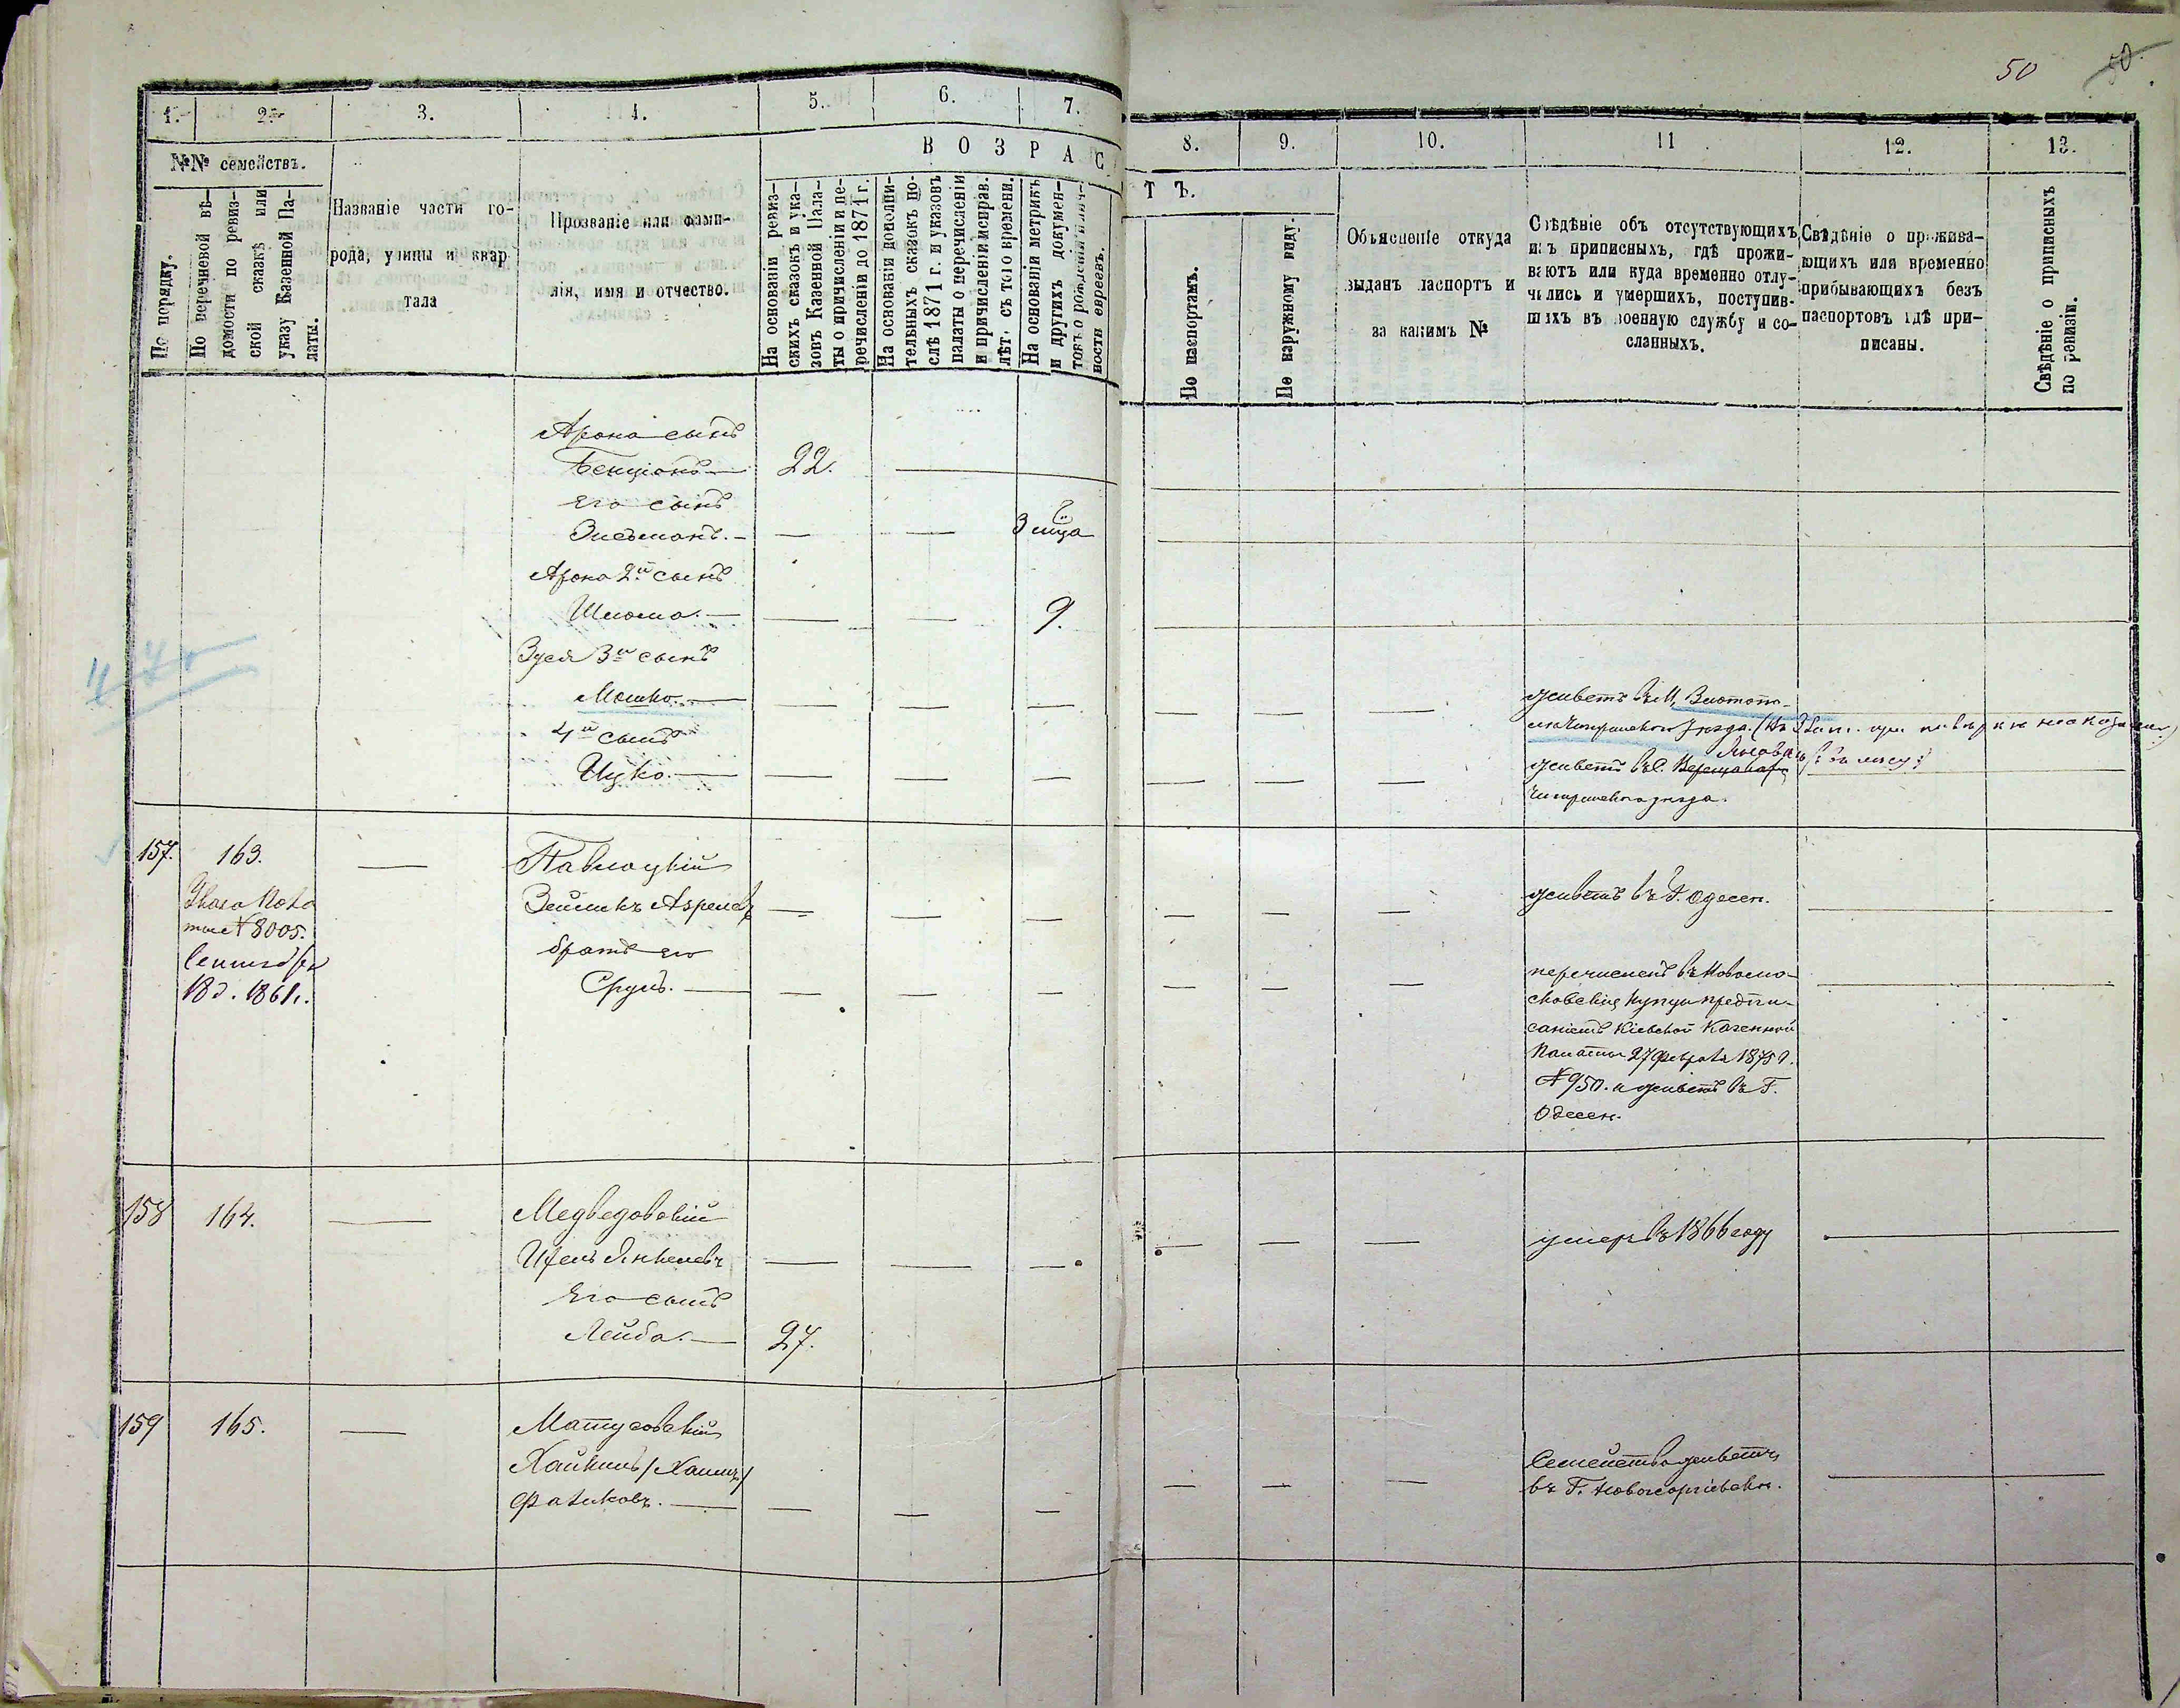 50 50.
1. 2. 3. 4. 5. 6. 7.
8. 9. 10. 11 12. 13.
№№ семействъ.
По порядку.
По перечневой вѣ-
домости по ревиз-
ской сказкѣ или
указу Казенной Па-
латы.
Названіе части го-
рода, улицы и квар
тала
Прозваніе или фами-
лія, имя и отчество.
ВОЗРАС
ТЪ.
На основаніи ревиз-
скихъ сказокъ и ука-
зовъ Казенной Пала-
ты о причисленіи и пе-
речисленіи до 1871 г.
На основаніи дополни-
тельныхъ сказокъ по-
слѣ 1871 г. и указовъ
палаты о перечисленіи
и причисленіи исправ.
лѣт. съ того времени.
На основаніи метрикъ
и другихъ докумен-
товъ о рожденіи и лич-
ности евреевъ.
По паспортамъ.
По наружному виду.
Объясненіе откуда
выданъ паспортъ и
за какимъ №
Свѣдѣніе объ отсутствующихъ
изъ приписныхъ, гдѣ прожи-
ваютъ или куда временно отлу-
чились и умершихъ, поступив-
шихъ въ военную службу и со-
сланныхъ.
Свѣдѣніе о прожива-
ющихъ или временно
прибывающихъ безъ
паспортовъ гдѣ при-
писаны.
Свѣдѣніе о приписныхъ
по ревизіи.
Арона сынъ
Бенціонъ 22.
Его сынъ
Зисьманъ. 3 мца
Арона 2й сынъ
Шлома. 9.
Зуся 3й сынъ
Мошко.
живетъ въ М. Златопо-
ля Чигиринского уѣзда.
4й сынъ
Ицко.
живетъ въ С. Верещаках
Чигиринского уѣзда.
157. 163.
№ 8005.
18 д. 1861 г.
Павлоцкій
Зейликъ Азрилевъ
живетъ въ Г. Одессѣ.
братъ его
Сруль.
перечисленъ въ Новомо-
сковскіе купцы предпи-
саніемъ Кіевской Казенной
Палаты 27 февраля 1875 г.
№ 950. и живетъ въ Г.
Одессѣ.
158 164.
Медведовскій
Янкелевъ
умеръ въ 1866 году
Его сынъ
Лейба. 27.
159 165.
Матусовскій
Хайкинъ /Хаимъ/
Фаликовъ.
Семейство живетъ
въ Г. Новогеоргіевскѣ.